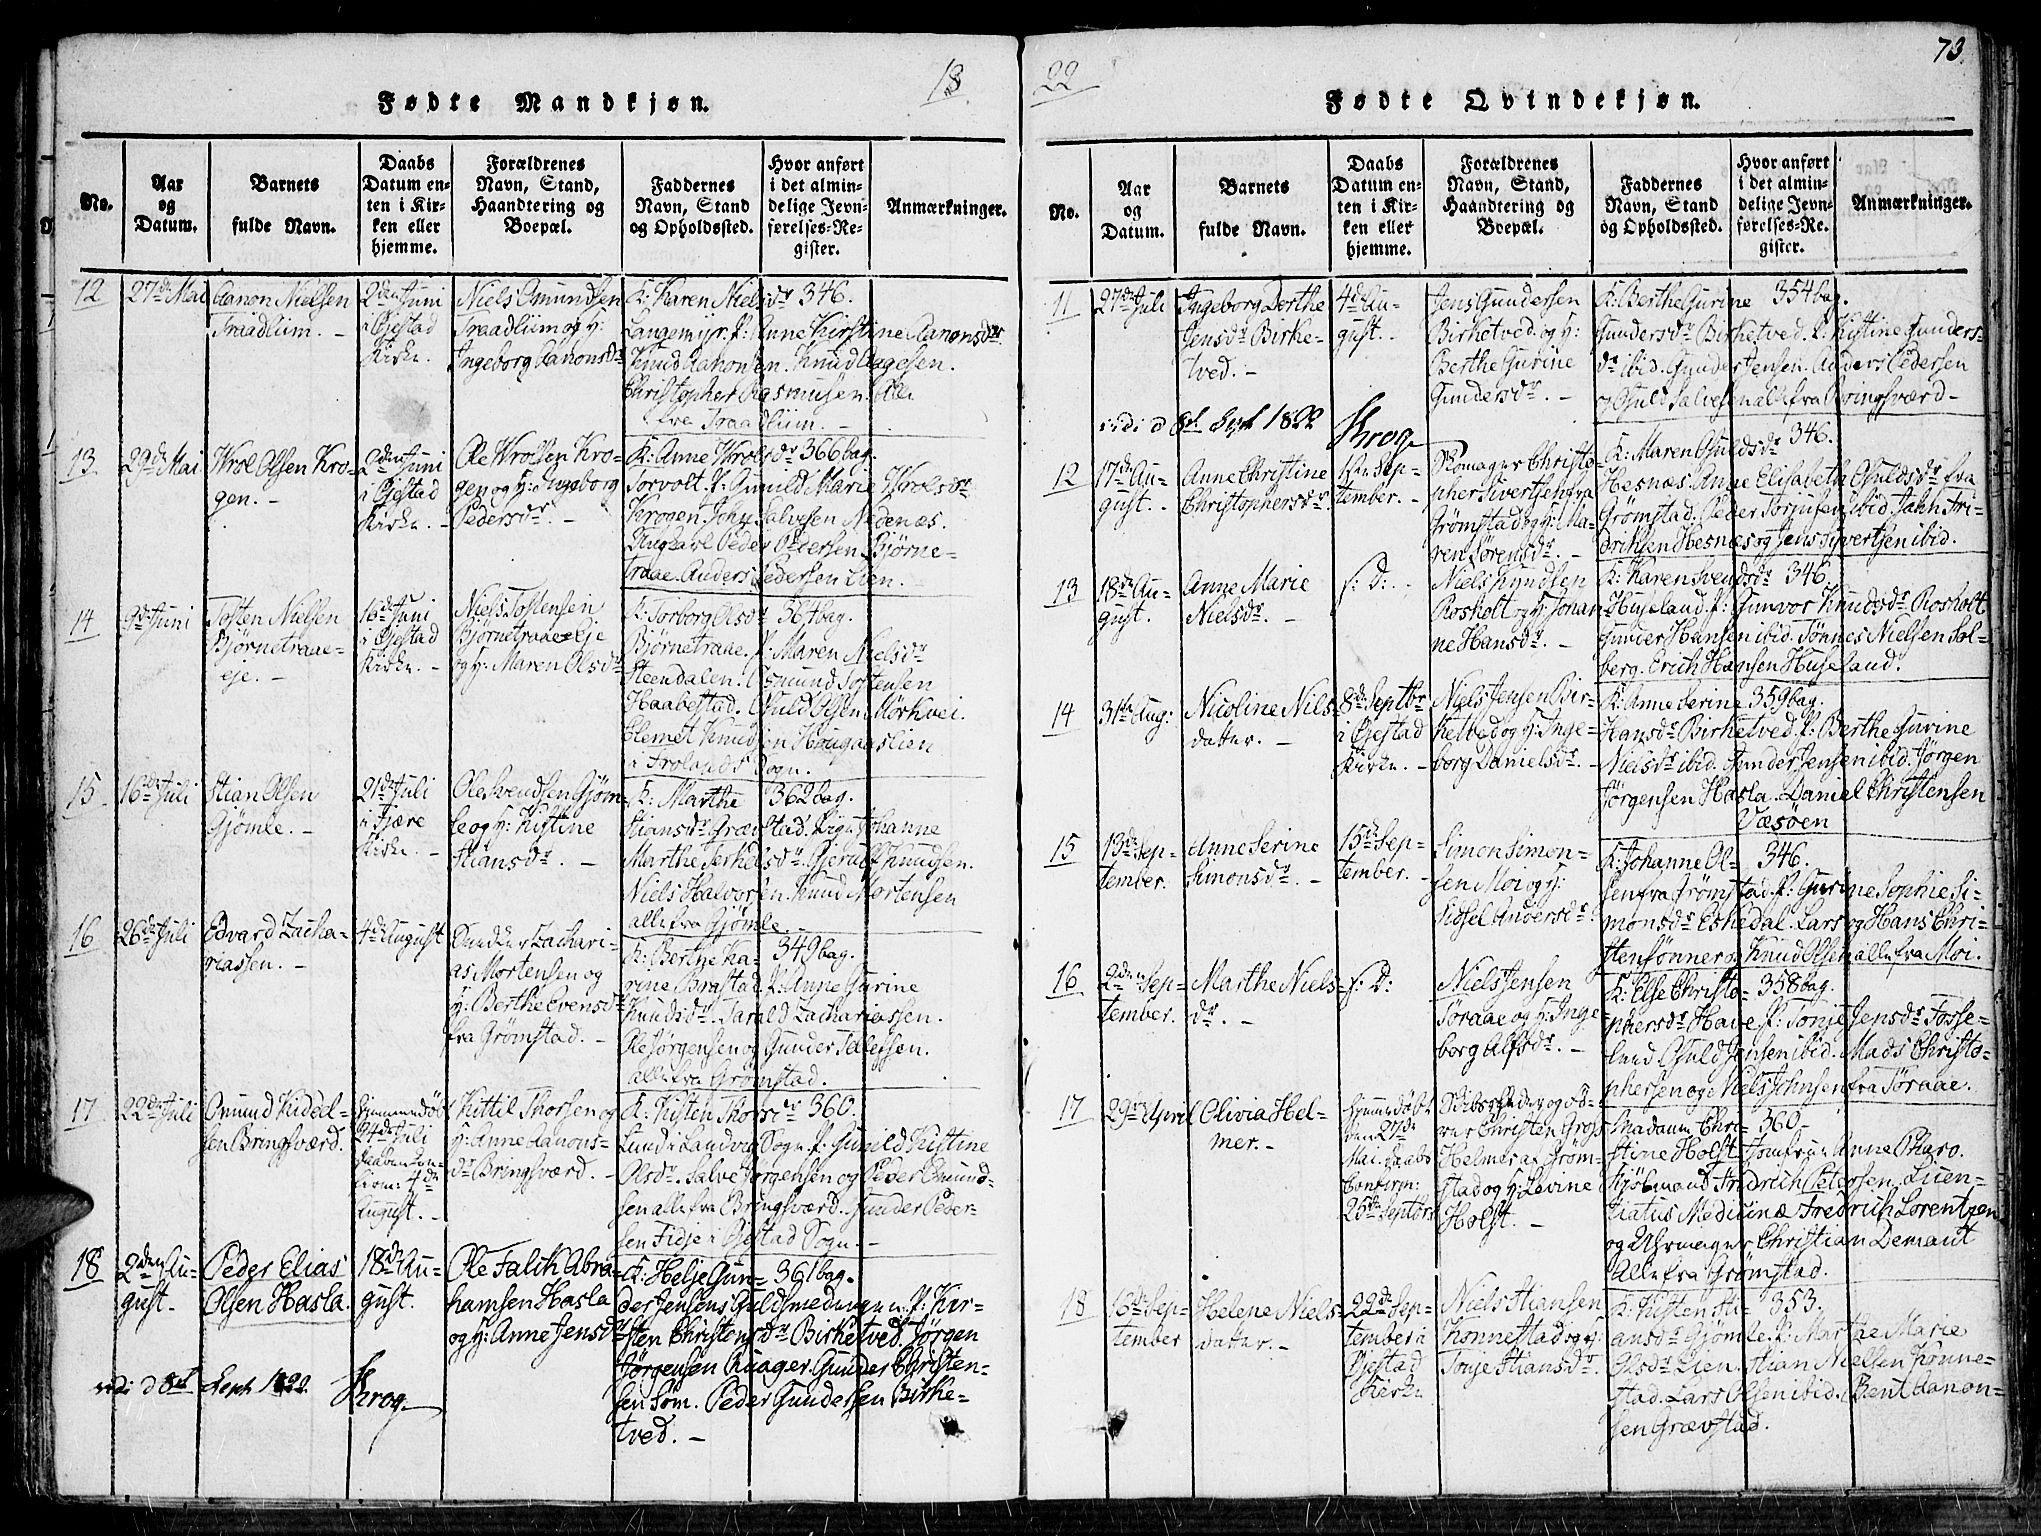 18
Fødte Mandkjøn.
No.
Aar
og
Datum.
Barnets
fulde Navn.
Daabs
Datum en-
ten i Kir-
ken eller
hjemme.
Forældrenes
Navn, Stand,
Haandtering og
Boepæl.
Faddernes
Navn, Stand
og Opholdssted.
Hvor anført
i det almin-
delige Jevn-
førelses-Re-
gister.
Anmærkninger.
12
27de Mai
Aanon Nielsen
Traadlium. -
2den Juni
i Øjestad
Kirke.
Niels Omundsen
Traadlium og H:
Ingeborg Aanonsdr
K: Karen Nielsdr 346.
Langemyr. P: Anne Kirstine Aanonsdr
Knud Aanonsen. Knud Aagesen.
Christopher Rasmusen. alle
fra Traadlium. -
13.
29de Mai
Wrol Olsen Kro-
gen. -
2den Juni
i Øjestad
Kirke. -
Ole Wrolsen Kro-
gen og H: Ingeborg
Pedersdr. -
K: Anne Wrolsdr 366 bag.
Torvolt. P: Gunild Marie Wrolsdr
Krogen. John Salvesen Nedenæs.
Ungkarl Peder Pedersen Bjørne-
traae. Anders Pedersen Lien.
14
9de Juni
Tosten Nielsen
Bjørnetraae-
eje. -
16de Juni
i Øjestad
Kirke. -
Niels Tostensen
Bjørnetraae-Eje
og H: Maren Olsdr
K: Torborg Olsdr 364 bag.
Bjørnetraae. P: Maren Nielsdr
Steendalen. Osmund Tostensen
Haabestad. Osuld Olsen Mørkvei.
Clemet Knudsen Hougaaslien
i Frolands Sogn.
15
16de Juli
Stian Olsen
Gjømle. -
21de Juli
i Fjære
Kirke. -
Ole Svendsen Gjøm-
le og H: Kistine
Stiansdr. -
K: Marthe 362 bag.
Stiansdr Grævstad. Pige Johanne
Marthe Terkelsdr. Gjerulf Knudsen.
Niels Halvorsen. Knud Mortensen
alle fra Gjømle.
16
26de Juli
Edvard Zacha-
riassen. -
4de August
Zachari-
as Mortensen og
H: Berthe Evensdr
fra Grømstad. -
K: Berthe Ka- 349 bag.
rine Brastad. P: Anne Gurine
Knudsdr. Tarald Zachariassen.
Ole Jørgensen og Gunder Tellefsen.
alle fra Grømstad.
17
22de Juli
Omund Kidel-
sen Bringsværd.
Hjemmedøbt
24de Juli
Daaben Con-
firm: 4de
August. -
Kittil Thorsen og
H: Anne Aanons-
dr Bringsværd. -
K: Kisten Thorsdr 360.
Lund i Landvig Sogn. P: Gunild Kistine
Olsdr. Salve Jørgensen og Peder Omund-
sen alle fra Bringsværd. Gunder Peder-
sen Fidje i Øjestad Sogn. -
18
2den Au-
gust. -
Peder Elias
Olsen Hasla.
18de Au-
gust.
Ole Falik Abra-
hamsen Hasla
og H: Anne Jensdr
K: Helje Gun- 361 bag.
der Jensens Guldsmedmyren. P: Ker-
sten Christensdr Birketved. Jørgen
Jørgensen Quager. Gunder Christen-
sen Søm. Peder Gundersen Birke-
tved. -
vidi d 8de Sept 1822.
Krog
22
73.
Fødte Qvindekjøn.
No.
Aar
og
Datum.
Barnets
fulde Navn.
Daabs
Datum en-
ten i Kir-
ken eller
hjemme.
Forældrenes
Navn, Stand,
Haandtering og
Boepæl.
Faddernes
Navn, Stand
og Opholdssted.
Hvor anført
i det almin-
delige Jevn-
førelses-Re-
gister.
Anmærkninger.
11
27de Juli
Ingeborg Berthe
Jensdr Birke-
tved. -
4de Au-
gust. -
Jens Gundersen
Birketved. og H:
Berthe Gurine
Gundersdr. -
K: Berthe Gurine 354 bag.
Gundersdr Birketved. P: Kistine Gunders-
dr ibid. Gunder Jensen. Anders Pedersen
og Osuld Salvesen alle fra Bringsværd -
vidi d 8de Sept 1822
Krog
12
17de Au-
gust. -
Anne Christine
Christophersdr.
1ste Sep-
tember. -
Skomager Christo-
pher Sivertsen fra
Grømstad og H: Ma-
ren Sørensdr. -
K: Maren Osuldsdr 346.
Hesnæs. Anne Elisabeth Osuldsdr fra
Grømstad. Peder Torjusen ibid. Jahn Fri-
driksen Hesnæs og Jens Syvertsen ibid.
13
18de Au-
gust.
Anne Marie
Nielsdr. -
s: D: -
Niels Knudsen
Rosholt og H: Johan-
ne Hansdr. -
K: Karen Svendsdr 346.
Huseland. P: Gunvor Knudsdr Rosholt
Gunder Hansen ibid. Tønnes Nielsen Sol-
berg. Erich Hansen Huseland.
14
31te Aug:
Nicoline Niels-
datter. -
8de Septbr
i Øjestad
Kirke. -
Niels Jensen Bir-
ketved og H: Inge-
borg Danielsdr. -
K: Anne Serine 359 bag.
Hansdr Birketved. P: Berthe Gurine
Nielsdr ibid. Gunder Jensen ibid. Jørgen
Jørgensen Hasla. Daniel Christensen
Væsøen
15
13de Sep-
tember.
Anne Serine
Simonsdr. -
15de Sep-
tember. -
Simon Simon-
sen Moi og H:
Sidsel Andersdr
K: Johanne Ol- 346.
sen fra Grømstad. P: Gurine Sophie Si-
monsdr Eskedal. Lars og Hans Chri-
stensønner og Knud Olsen alle fra Moi.
16
2den Sep-
tember.
Marthe Niels-
dr. -
s: D:
Niels Jensen
Tøraae og H: Inge-
borg Alfsdr. -
K: Else Christo- 358 bag.
phersdr Have. P: Tonje Jensdr Fosse-
lund. Osuld Jensen ibid. Mads Christo-
phersen og Niels Johnsen fra Tøraae.
17
29de April
Olivia Hel-
mer. -
Hjemmedøbt
den 27de
Mai. Daabs
Confirm:
25de Septbr
Skibsreder og
Christen Gross
Helmer af Grøm-
stad og H: Lovine
Holst. -
Madame Chri- 360.
stine Holst. Jomfrue Anne Pharo.
Kjøbmand Fridrich Petersen. Licen-
tiatus Medicinæ Fredrich Lorentzen
og Uhrmager Christian Demant
alle fra Grømstad.
18
16de Sep-
tember
Helene Niels-
datter. -
22de Sep-
tember i
Øjestad
Kirke
Niels Stiansen
Konnestad og H:
Tonje Stiansdr.
K: Kisten Sti- 353.
ansdr Gjømle. P: Marthe Marie
Olsdr Lien. Stian Nielsen Konne-
stad. Lars Olsen ibid. Bent Aanon-
sen Grævstad.